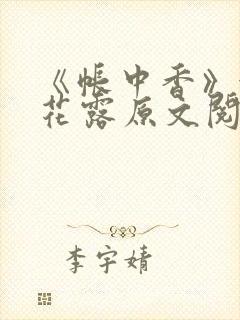 《帐中香》
花露原文阅
李宇婧